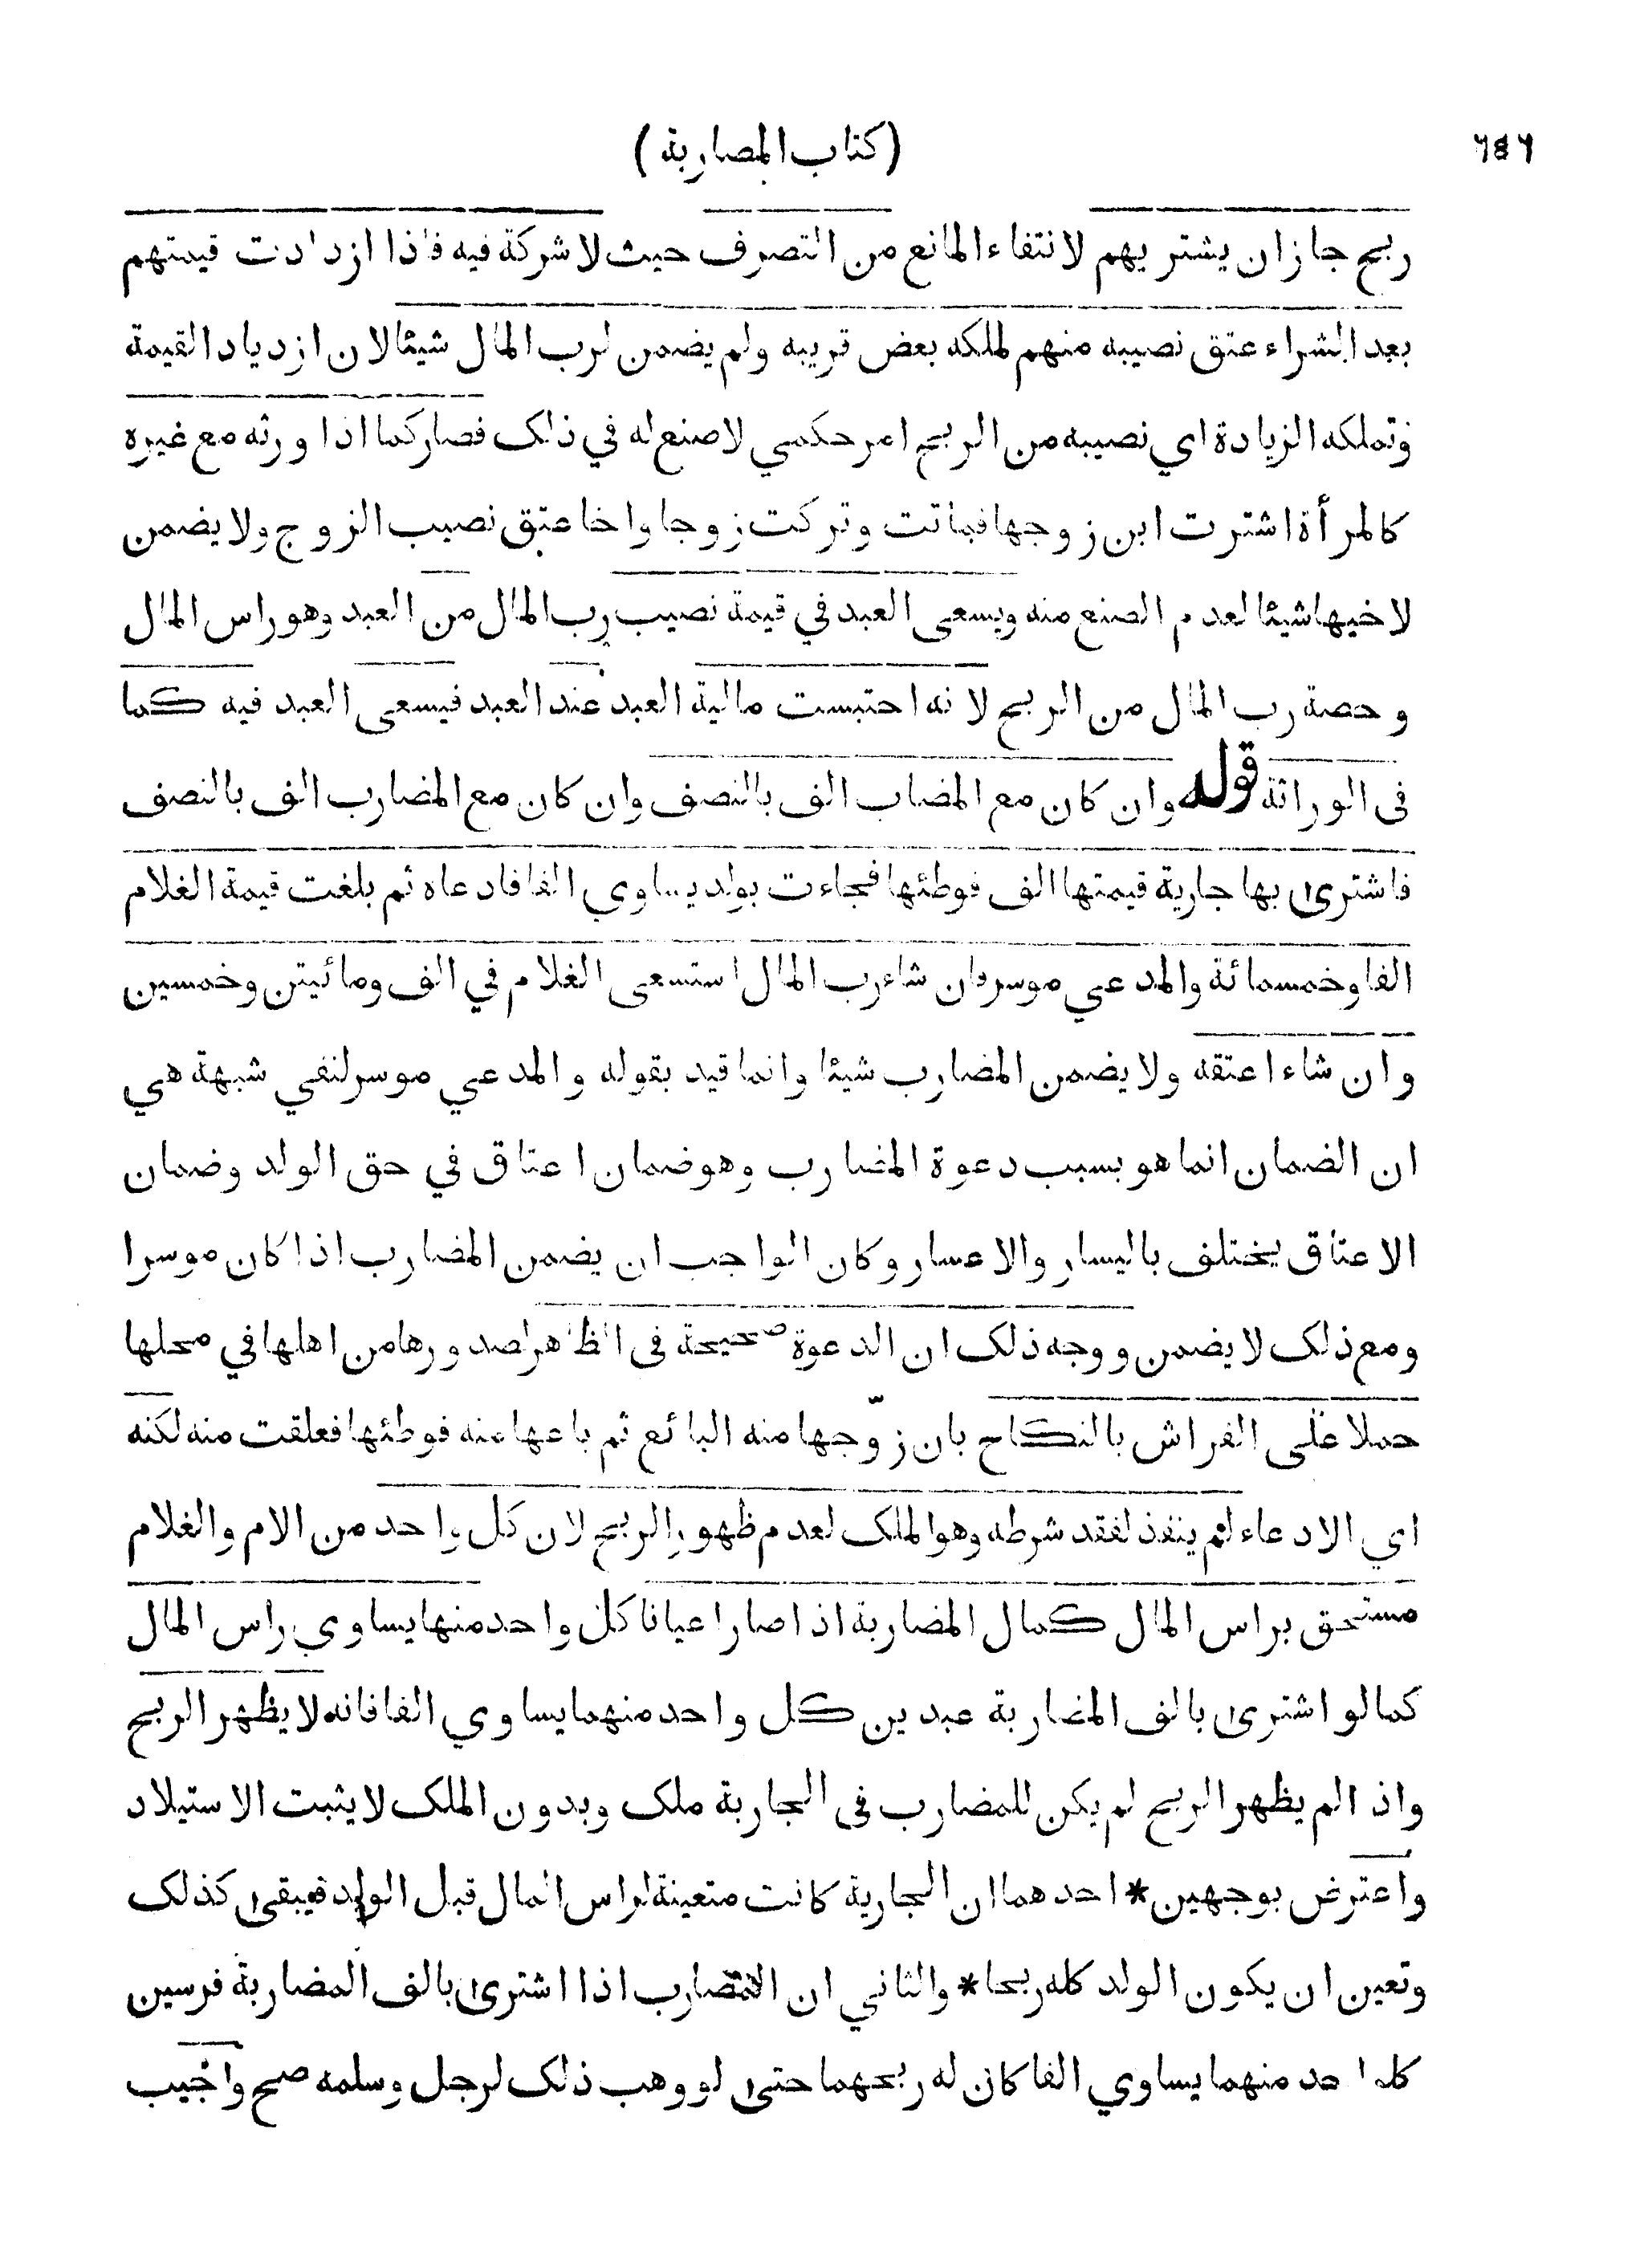 (كتاب المضاربة)
ربح جاز ان يشتريهم لانتفاء المانع من التصرف حيث لا شركة فيه فاذا ازدادت قيمتهم
بعد الشراء عتق نصيبه منهم لملكه بعض قريبه ولم يضمن لرب المال شيئا لان ازدياد القيمة
وتملكه الزيادة اي نصيبه من الربح امر حكمي لا صنع له في ذلك فصار كما اذا ورثه مع غيره
كالمرأة اشترت ابن زوجها فماتت وتركت زوجا واخا عتق نصيب الزوج ولا يضمن
لاخيها شيئا لعدم الصنع منه ويسعى العبد في قيمة نصيب رب المال من العبد وهو راس المال
وحصة رب المال من الربح لانه احتبست مالية العبد عند العبد فيسعى العبد فيه كما
فى الوراثة قوله وان كان مع المضاب الف بالنصف وان كان مع المضارب الف بالنصف
فاشترى بها جارية قيمتها الف فوطئها فجاءت بولد يساوي الفا فادعاه ثم بلغت قيمة الغلام
الفا وخمسمائة والمدعي موسر فان شاء رب المال استسعى الغلام في الف ومائيتن وخمسين
وان شاء اعتقه ولا يضمن المضارب شيئا وانما قيد بقوله والمدعي موسر لنفي شبهة هي
ان الضمان انما هو بسبب دعوة المضارب وهو ضمان اعتاق في حق الولد وضمان
الاعتاق يختلف باليسار والاعسار وكان الواجب ان يضمن المضارب اذا كان موسرا
ومع ذلك لا يضمن ووجه ذلك ان الدعوة صحيحة فى الظاهر لصدورها من اهلها في محلها
حملا على الفراش بالنكاح بان زوّجها منه البائع ثم باعها منه فوطئها فعلقت منه لكنه
اي الادعاء لم ينفذ لفقد شرطه وهو الملك لعدم ظهور الربح لان كل واحد من الام والغلام
مستحق براس المال كمال المضاربة اذا صار اعيانا كل واحد منها يساوي راس المال
كما لو اشترى بالف المضاربة عبدين كل واحد منهما يساوي الفا فانه لا يظهر الربح
واذا لم يظهر الربح لم يكن للمضارب فى الجارية ملك وبدون الملك لا يثبت الاستيلاد
واعترض بوجهين * احدهما ان الجارية كانت متعينة لراس المال قبل الولد فيبقى كذلك
وتعين ان يكون الولد كله ربحا * والثاني ان المضارب اذا اشترى بالف المضاربة فرسين
كل واحد منهما يساوي الفا كان له ربعهما حتى لو وهب ذلك لرجل وسلمه صح واجيب